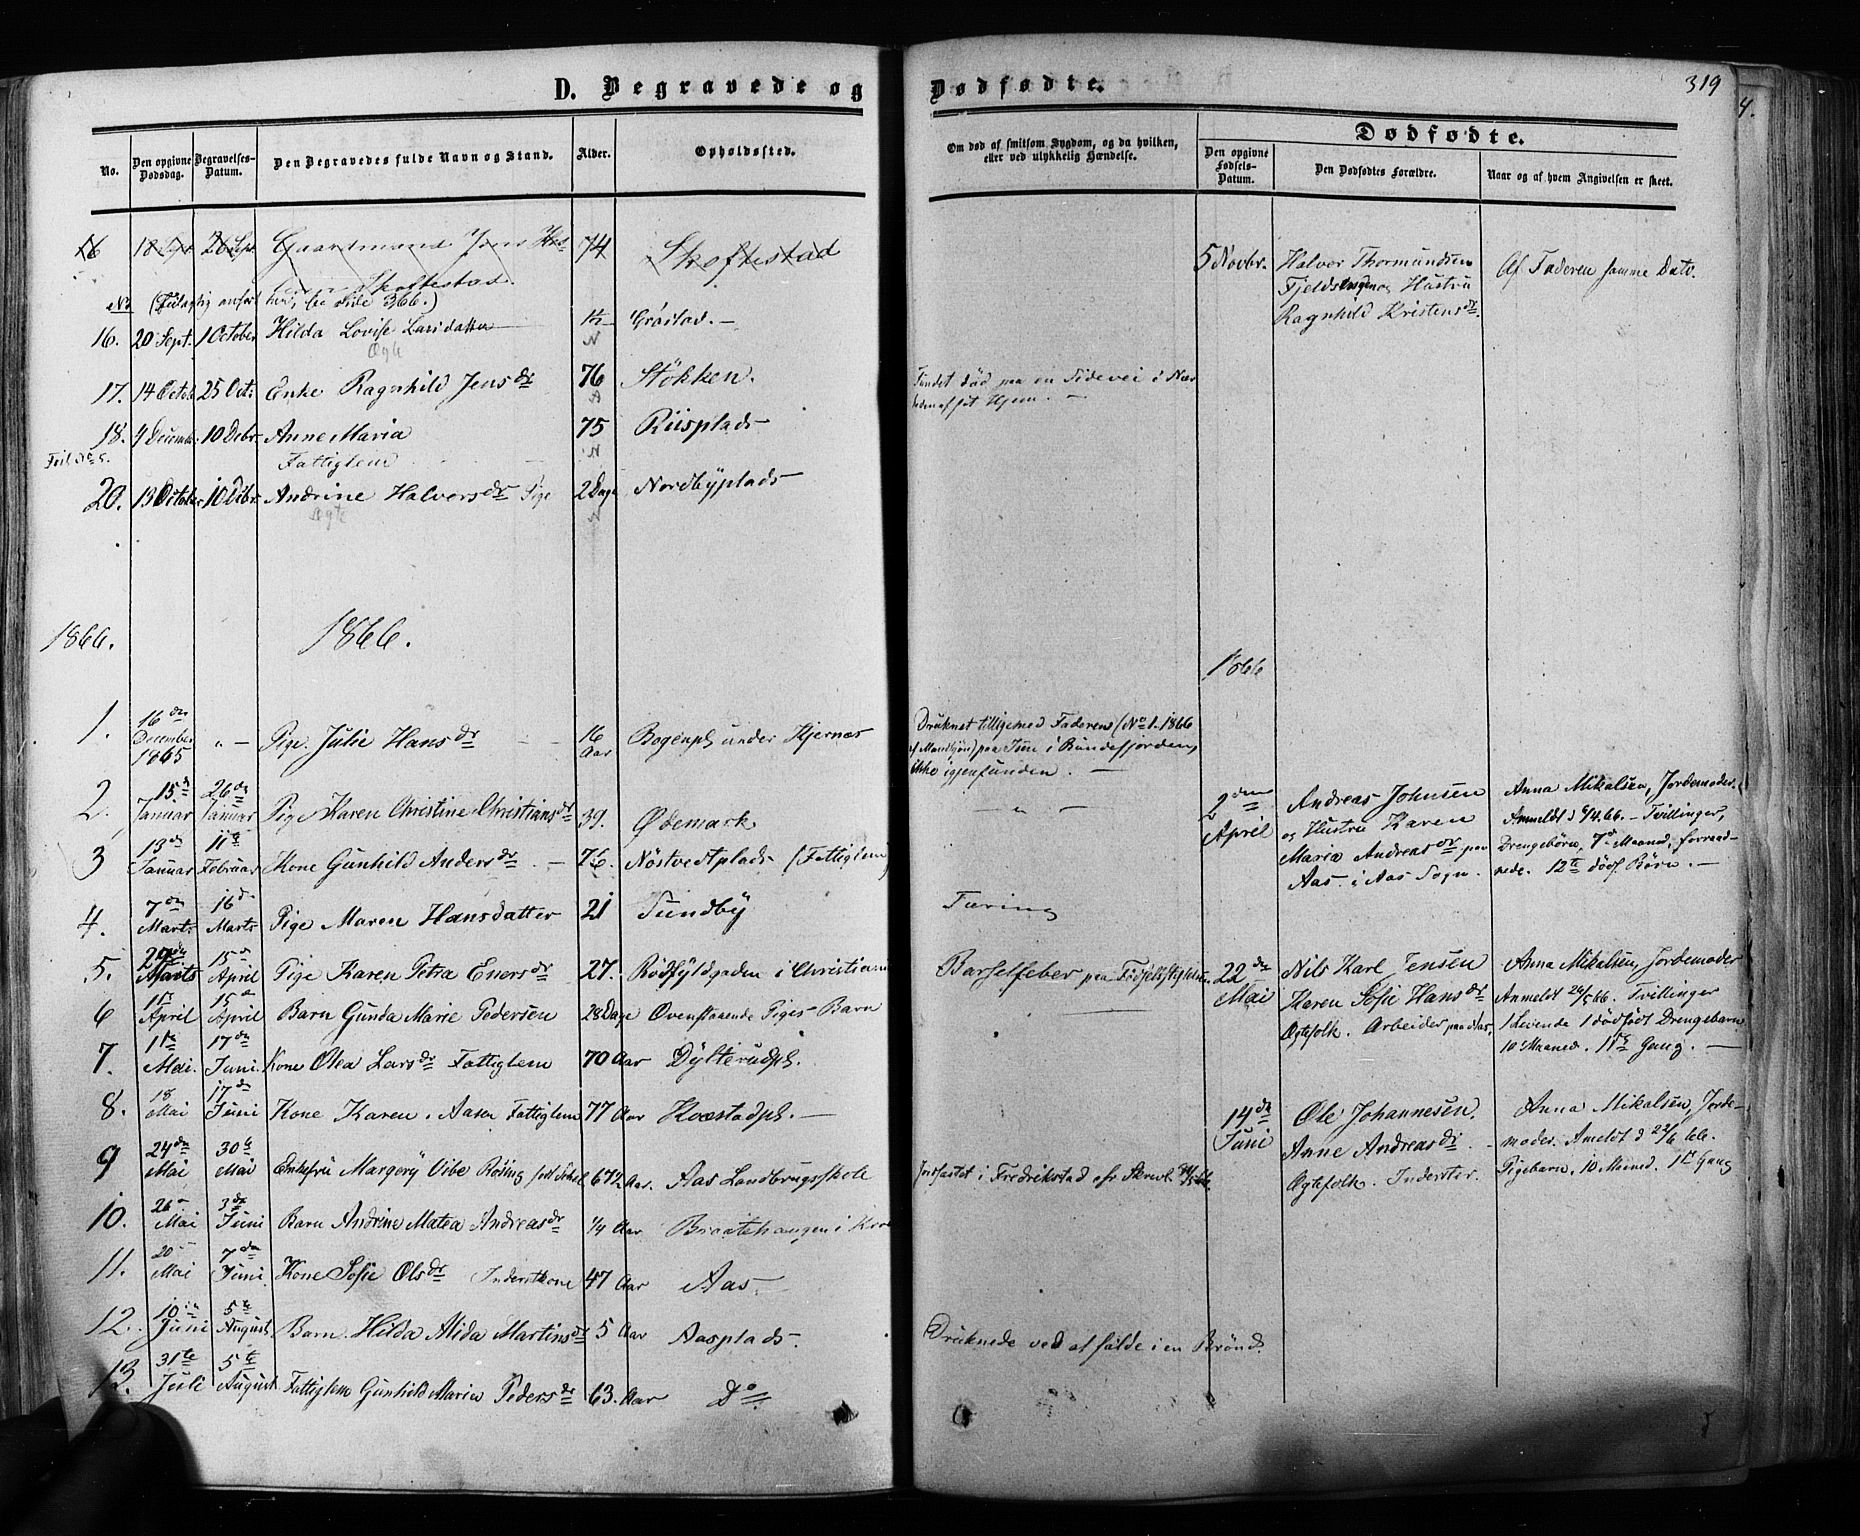 D. Begravede og
Dødfødte.
319
No.
Den opgivne Dødsdag.
Begravelses-Datum.
Den Begravedes fulde Navn og Stand.
Alder.
Opholdssted.
Om død af smitsom Sygdom, og da hvilken,
eller ved ulykkelig Hændelse.
Dødfødte.
Den opgivne Fødsels-Datum.
Den Dødfødtes Forældre.
Naar og af hvem Angivelsen er skeet.
16 18 Sept 26 Sept. Gaardmand Jens 74 Skoftestad
Skoftestad.
5 Novbr. Halvor Thormundsen Af Faderen samme Dato
Fjeldsengen og Hustru
Ragnhild Kristensdr.
se Side 366.)
16. 20 Sept. 1 October Hilda Lovise Larsdatter Gröstad. –
Ægte N
17. 14 Octob 25 Oct. Enke Ragnhild Jensdr 76 Stökken. Fundet död paa en Sidevei i Nær
heden af sit Hjem. –
18. 4 December 10 Debr. Anne Maria 75 Riisplads
Fattiglem N
Feil No 5.
20. 13 October 10 Debr. Andrine Halvorsdr Pige 2 Dage Nordbyplads
Ægte N
1866. 1866.
1866
1. 16de December 1865 " – Pige Julie Hansdr 16 Aar Bogenpl. under Kjernæs Druknet tilligemed Faderen (No 1. 1866
af Mandkjøn) paa Isen i Bundefjorden,
ikke igjenfunden. –
2. 15de Januar 26de Januar Pige Karen Christine Christiansdr 39. Ødemark – " –
2den April Andreas Johnsen Anna Mikalsen, Jordemoder.
og Hustru Karen Anmeldt d 6/4.66. – Tvillinger,
Maria Andreasdr paa Drengebörn, 7de Maaned, forraad-
Aas i Aas Sogn. nede. 12te dödf. Börn. –
3 13de Januar 11te Februar Kone Gunhild Andersdr – 76. Nöstvedtplads (Fattiglem)
4. 7de Marts 16de Marts Pige Maren Hansdatter 21 Sundby Tæring
5. 29de Marts 15de April Pige Karen Petra Enersdr 27. Rödfyldgaden i Christiania Barselfeber paa Födselsstiftelsen.
22de Mai Nils Karl Jensen Anna Mikalsen, Jordemoder
Karen Sofie Hansdr Anmeldt 24/5 66. Tvillinger
Ægtefolk. Arbeider paa Aas, 1 Levende 1 dödfödt Drengebarn
10 Maaned. 11te Gang. –
6 11te April 15de April Barn Gunda Marie Pedersen 28 Dage Ovenstaaende Piges Barn
7. 11te Mai. 17de Juni. Kone Olea Larsdr Fattiglem 70 Aar Dylterudpl.
8. 18 Mai 17de Juni Kone Karen Aasen Fattiglem 77 Aar Kvæstadpl. –
14de Juni Ole Johannesen, Anna Mikalsen, Jorde-
Anne Andreasdr. – moder. Anmeldt d 22/6 66.
Ægtefolk. Inderster. Pigebarn, 10 Maaned. 1ste Gang
9 24de Mai 30te Mai Enkefru Margery Vibe Röding 67½ Aar. Aas Landbrugsskole Jordfæstet i Fredrikstad
10. 26de Mai 3de Juni Barn Andrine Matea Andreasdr ¼ Aar Braatehaugen i
11. 20 Mai 7de Juni Kone Sofie Olsdr Inderstkone 47 Aar Aas –
12. 10de Juni 5te August Barn Hilda Alida Martinsdr 5 Aar Aasplads. Druknede ved at falde i en Brönd.
13. 31te Juli 5te August Fattiglem Gunhild Maria Pedersdr 63. Aar Do.